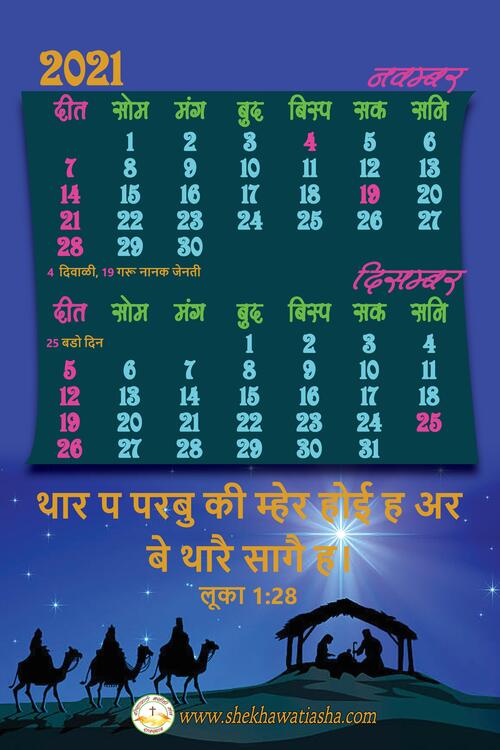 2021 नवम्बर
दीत सोम मंग बुद बिस्प सक सनि
1 2 3 4 5 6
7 8 9 10 11 12 13
14 15 16 17 18 19 20
21 22 23 24 25 26 27
28 29 30
4 दिवाळी, 19 गरू नानक जेनती
दिसम्बर
दीत सोम मंग बुद बिस्प सक सनि
25 बडो दिन 1 2 3 4
5 6 7 8 9 10 11
12 13 14 15 16 17 18
19 20 21 22 23 24 25
26 27 28 29 30 31
थार प परबु की म्हेर होई ह अर
बे थारै सागै ह।
लूका 1:28
www.shekhawatiasha.com